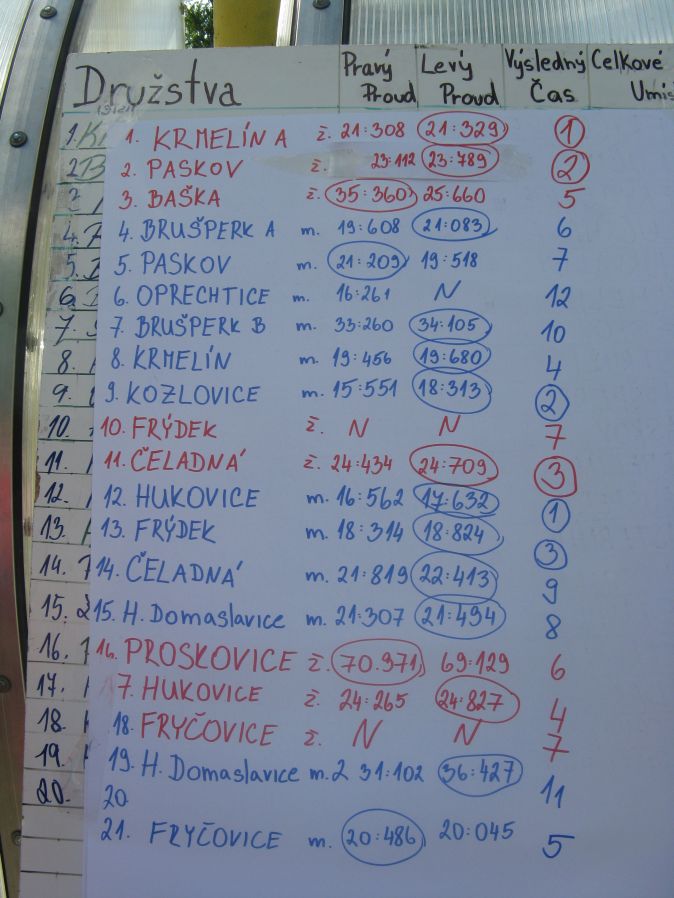 Družstva Pravý Proud Levý Proud Výsledný Čas Celkové
1. KRMELÍN A ž. 21:308 21:329 1
2. PASKOV ž. 23:112 23:789 2
3. BAŠKA ž. 35:360 25:660 5
4. BRUŠPERK A m. 19:608 21:083 6
5. PASKOV m. 21:209 19:518 7
6. OPRECHTICE m. 16:261 N 12
7. BRUŠPERK B m. 33:260 34:105 10
8. KRMELÍN m. 19:456 19:680 4
9. KOZLOVICE m. 15:551 18:313 2
10. FRÝDEK ž. N N 7
11. ČELADNÁ ž. 24:434 24:709 3
12. HUKOVICE m. 16:562 17:632 1
13. FRÝDEK m. 18:314 18:824 3
14. ČELADNÁ m. 21:819 22:413 9
15. H. Domaslavice m. 21:307 21:494 8
16. PROSKOVICE ž. 70.971 69:129 6
17. HUKOVICE ž. 24:265 24:827 4
18. FRYČOVICE ž. N N 7
19. H. Domaslavice m.2 31:102 36:427 11
20. 20
21. FRYČOVICE m. 20:486 20:045 5